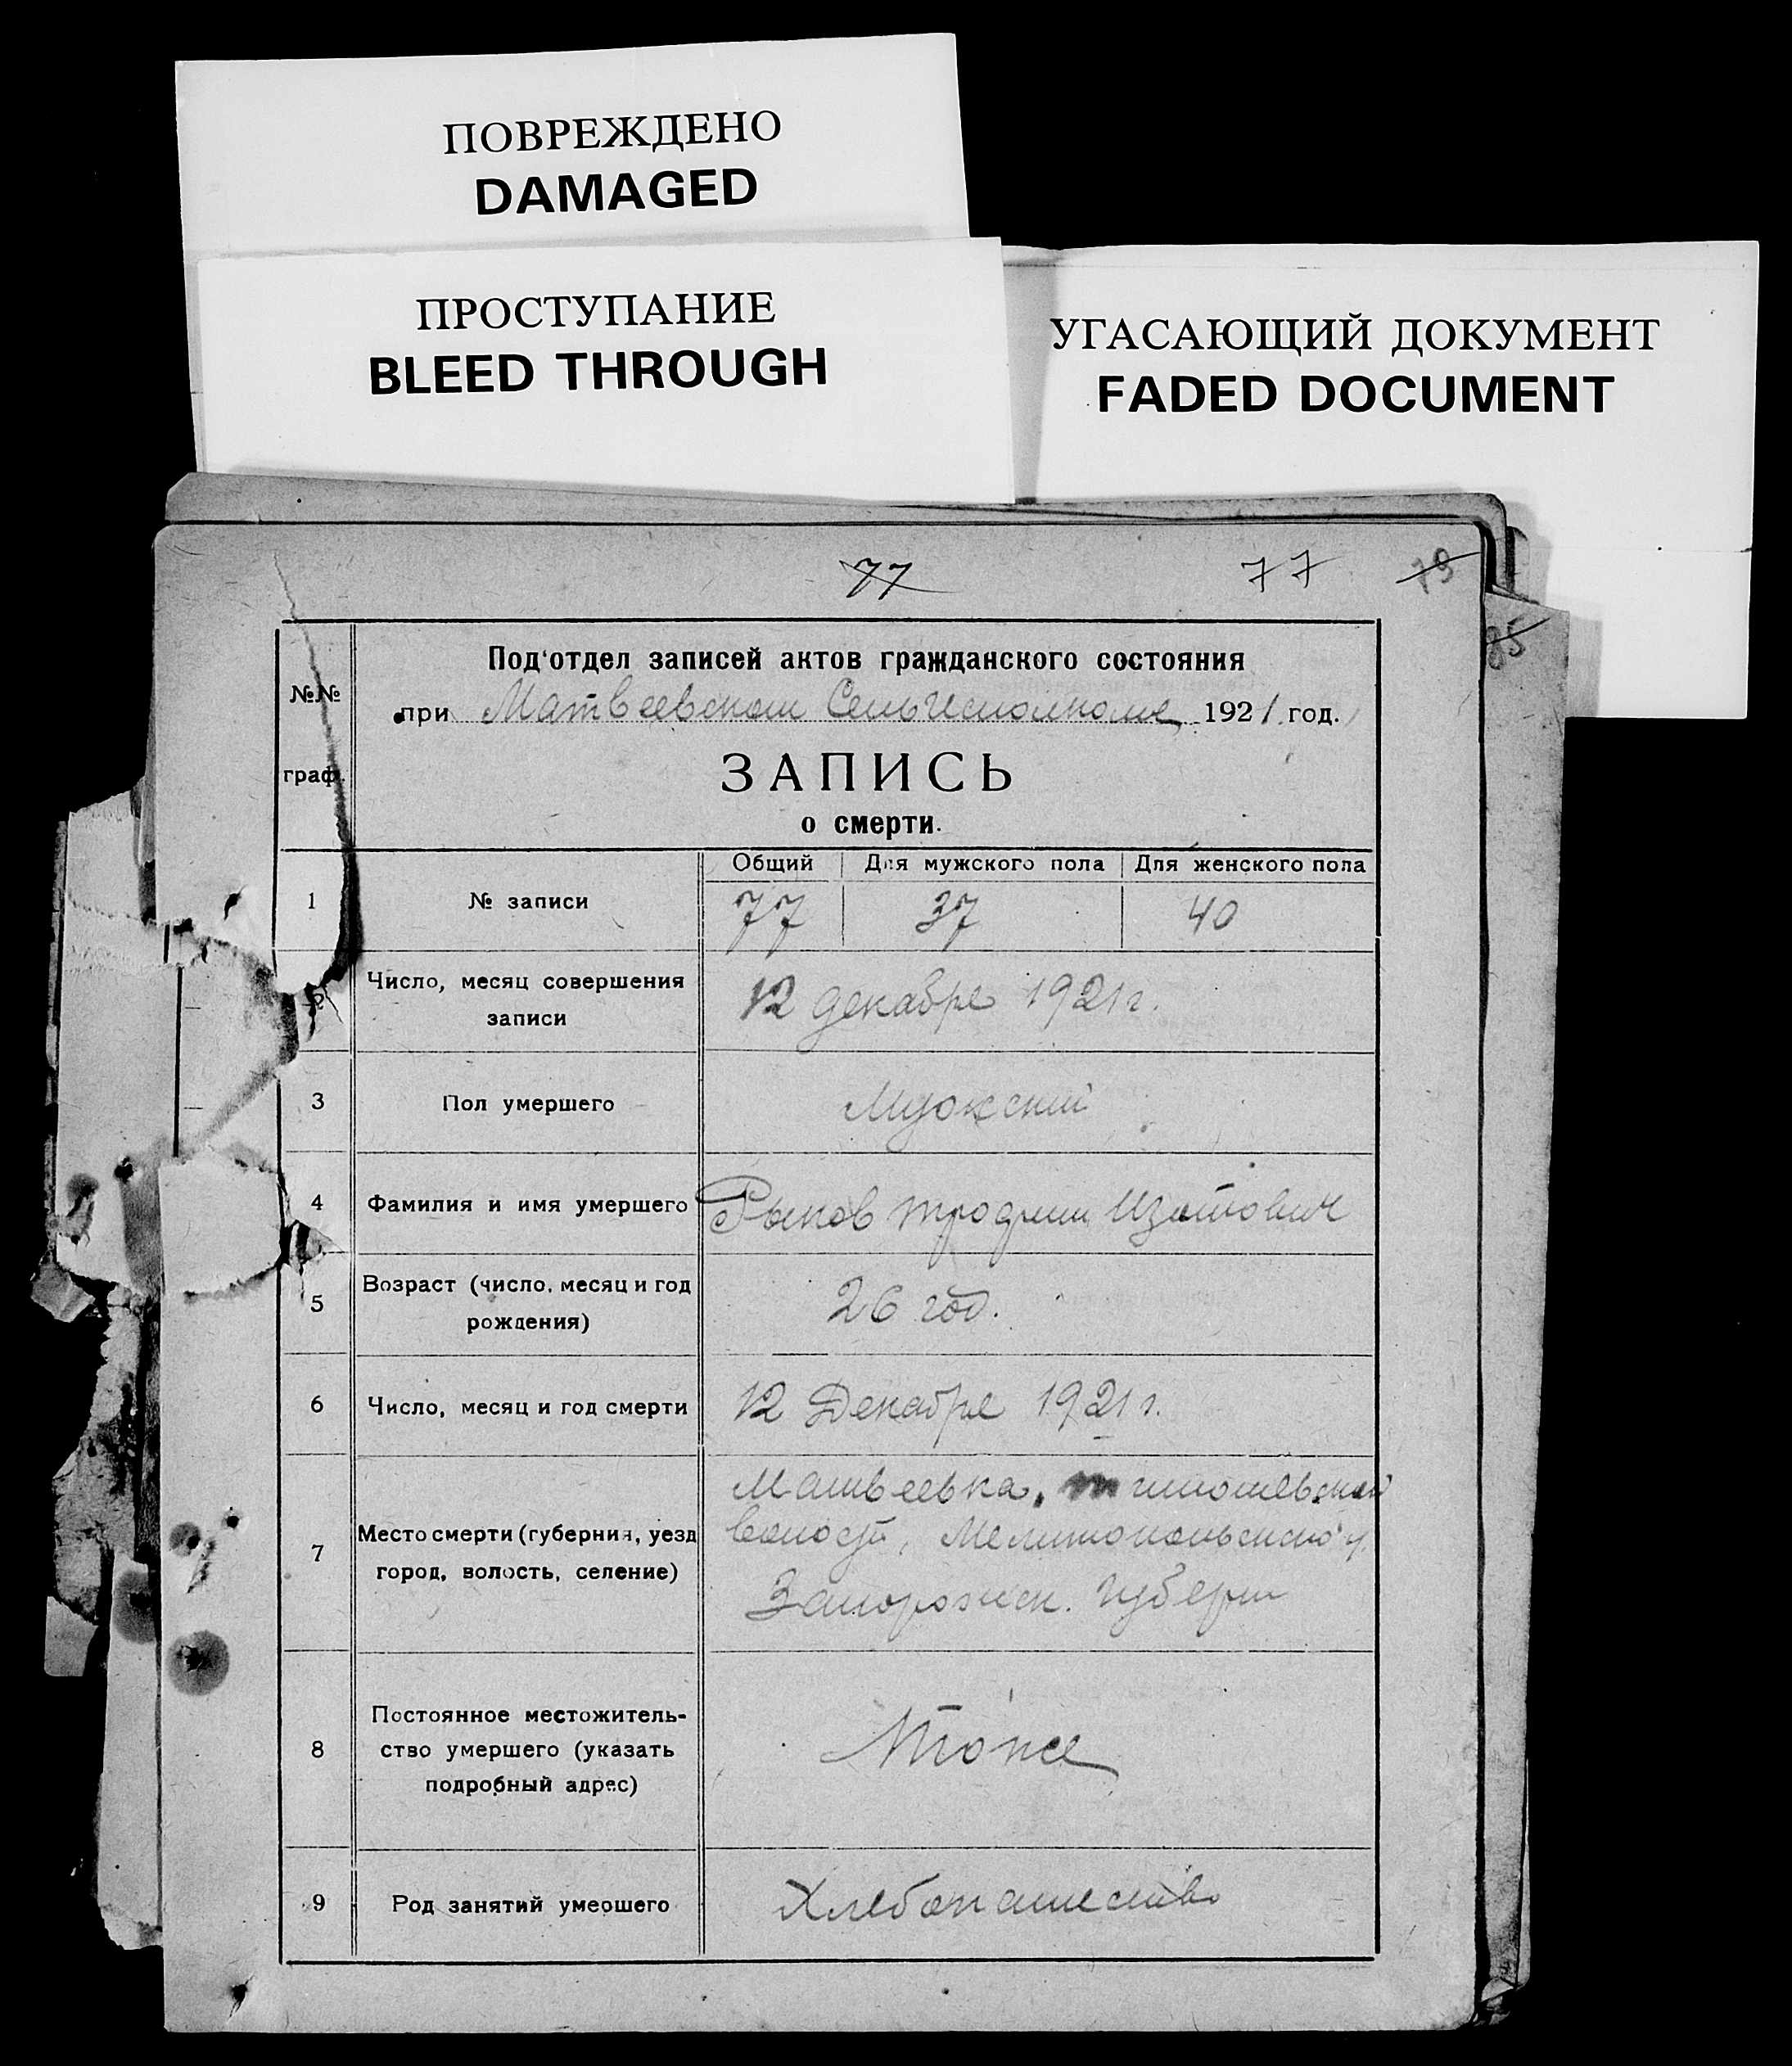 ПОВРЕЖДЕНО
DAMAGED
ПРОСТУПАНИЕ
BLEED THROUGH
УГАСАЮЩИЙ ДОКУМЕНТ
FADED DOCUMENT
77 77 79
85
Под'отдел записей актов гражданского состояния
№№
при Матвеевском Сельисполкоме 1921 год.
ЗАПИСЬ
граф.
о смерти.
Общий Для мужского пола Для женского пола
1 № записи 77 37 40
Число, месяц совершения
записи
12 декабре 1921 г.
3 Пол умершего Мужский
4 Фамилия и имя умершего Рыков Изотович
5 Возраст (число, месяц и год
рождения)
26 год.
6 Число, месяц и год смерти 12 Декабре 1921 г.
7 Место смерти (губерния, уезд
город, волость, селение)
Матвеевка,
волости, Мелитопольского у.
Запорожск. Губерни
8 Постоянное местожитель-
ство умершего (указать
подробный адрес)
Тоже
9 Род занятий умершего Хлебопашество